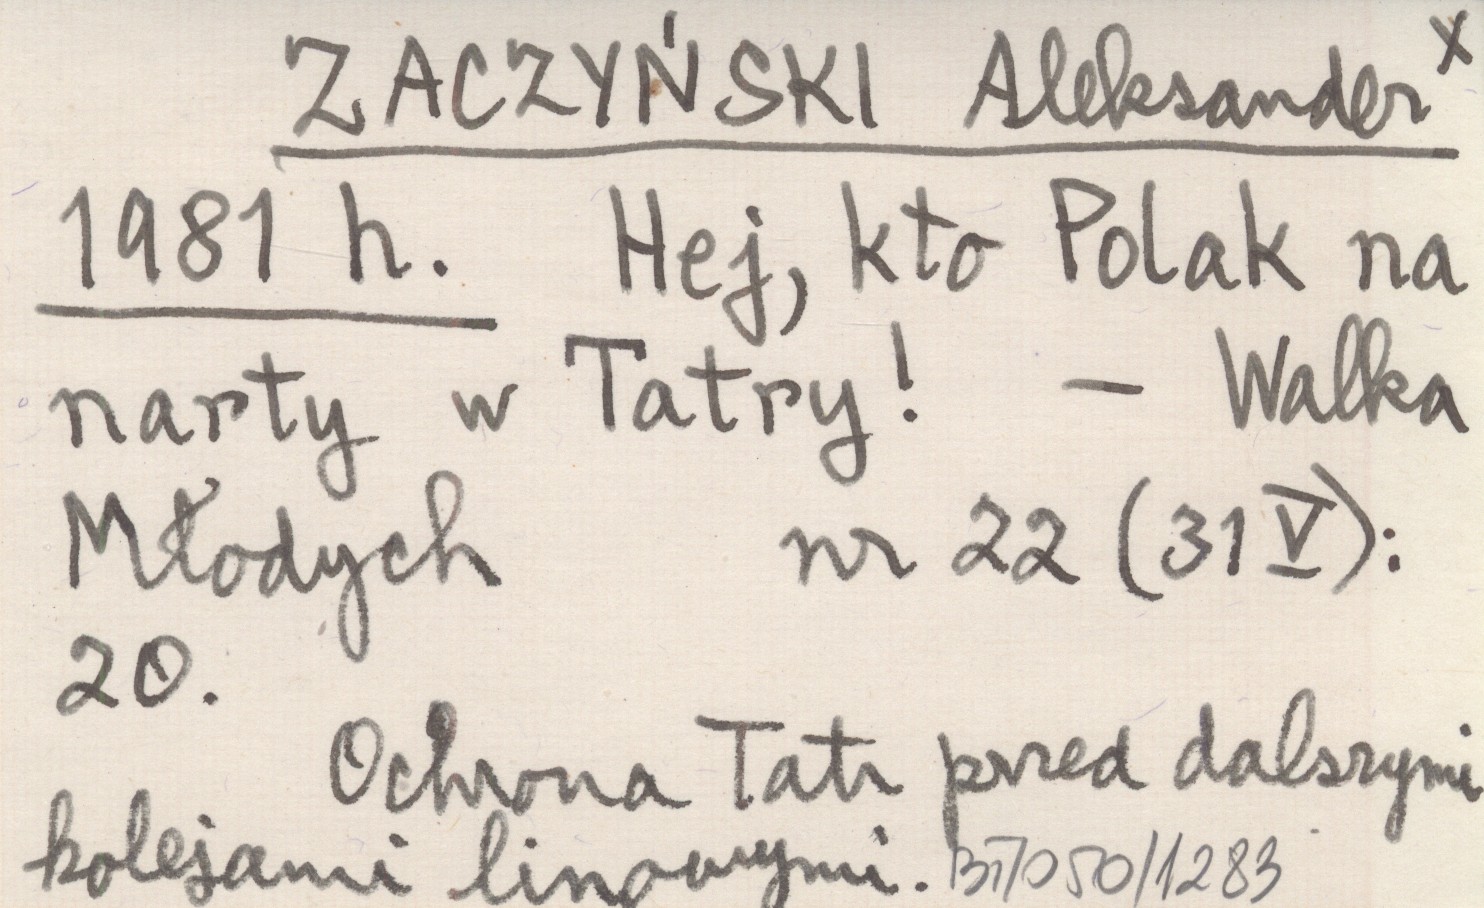 ZACZYŃSKI Aleksander x
1981 h. Hej, kto Polak na
narty w Tatry! – Walka
Młodych nr 22 (31 V):
20.
Ochrona Tatr przed dalszymi
kolejami linowymi. BT/050/1283